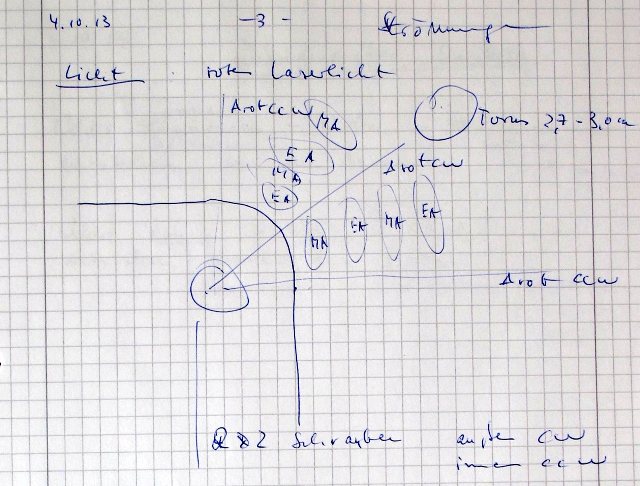 4.10.13 - 3 - Strömungen
Licht rotes Laserlicht
Arot ccw
MA
Torus 2,7 - 3,0 cm
EA
Arot cw
MA
EA
MA EA MA EA
Arot ccw
2 Schrauben außen cw
innen ccw